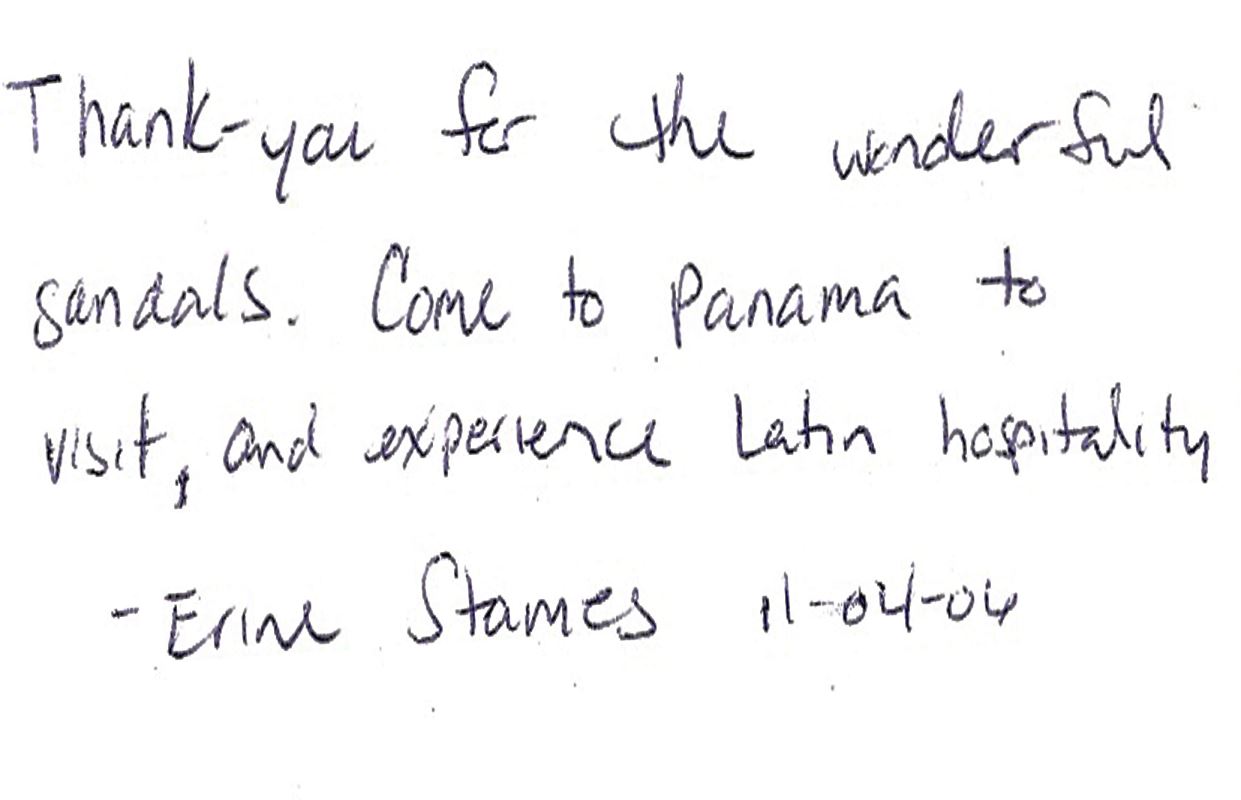 Thank-you for the wonderful
sandals. Come to Panama to
visit, and experience Latin hospitality
- Erine Stames 11-04-06